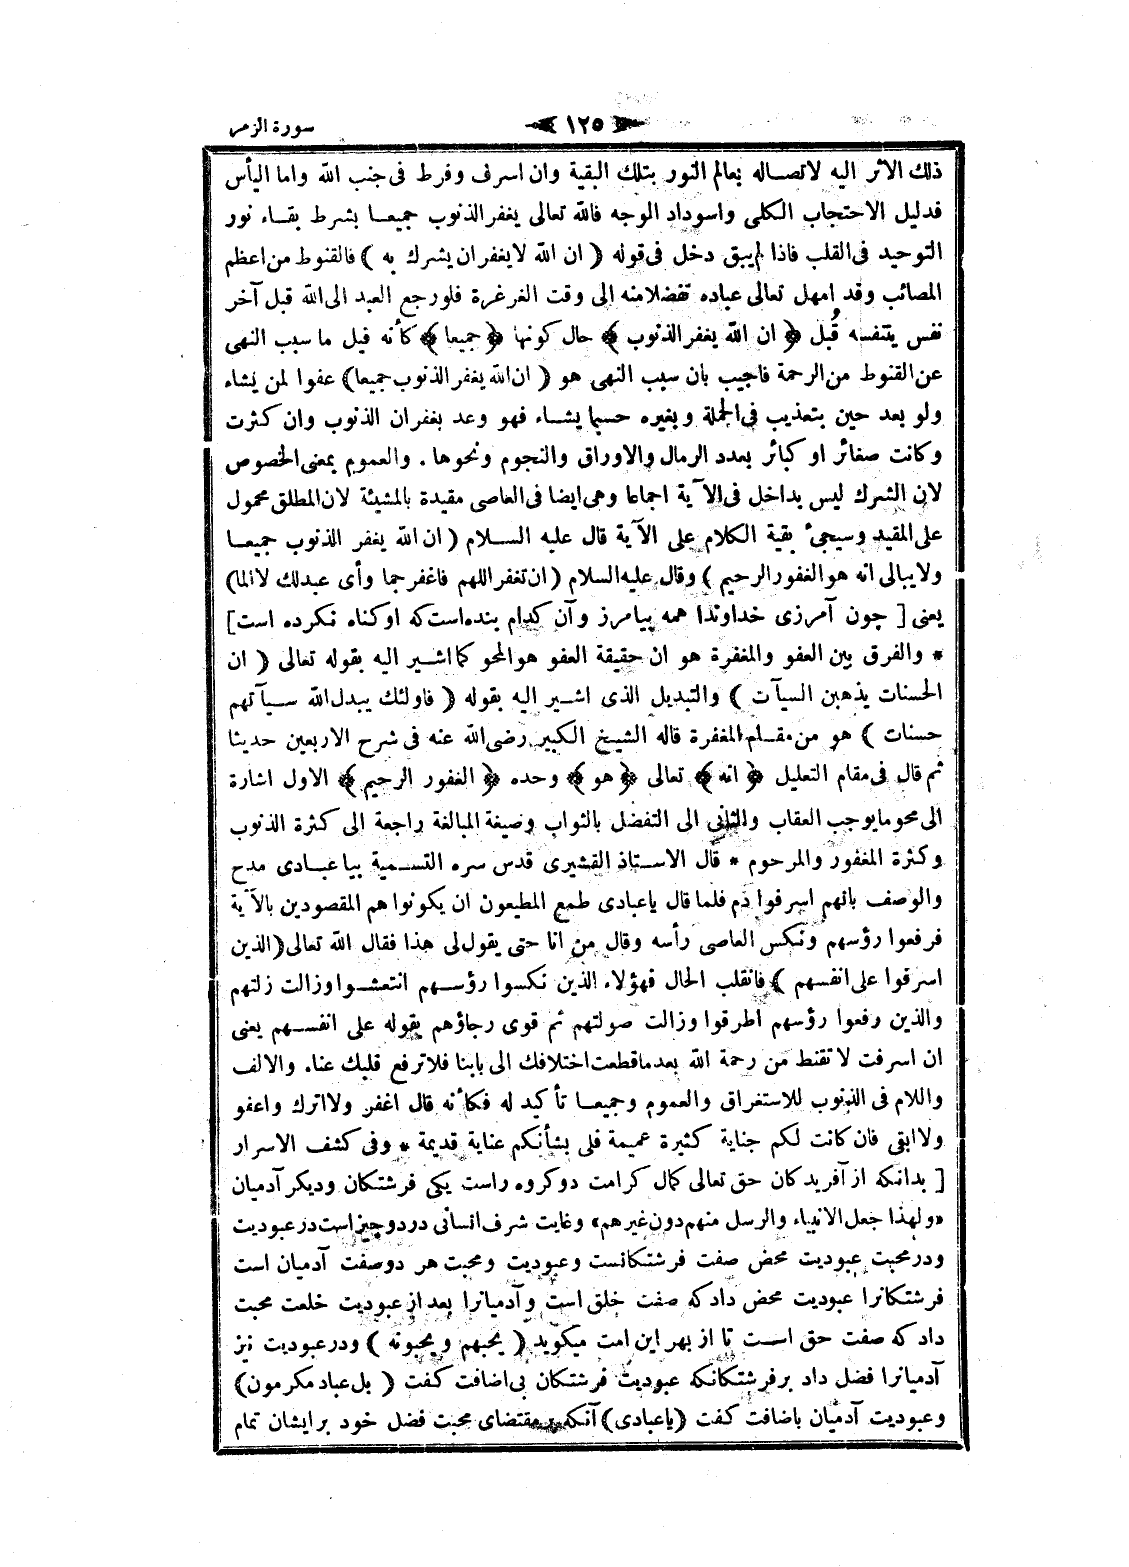 سورة الزمر
﴿١٢٥﴾
ذلك الاثر اليه لاتصاله بعالم النور بتلك البقية وان اسرف وفرط فى جنب الله واما اليأس
فدليل الاحتجاب الكلى واسوداد الوجه فالله تعالى يغفر الذنوب جميعا بشرط بقاء نور
التوحيد فى القلب فاذا لم يبق دخل فى قوله ( ان الله لايغفر ان يشرك به ) فالقنوط من اعظم
المصائب وقد امهل تعالى عباده تفضلا منه الى وقت الغرغرة فلو رجع العبد الى الله قبل آخر
نفس يتنفسه قُبل ﴿ ان الله يغفر الذنوب ﴾ حال كونها ﴿ جميعا ﴾ كأنه قيل ما سبب النهى
عن القنوط من الرحمة فاجيب بان سبب النهى هو ( ان الله يغفر الذنوب جميعا) عفوا لمن يشاء
ولو بعد حين بتعذيب فى الجملة وبغيره حسبما يشاء فهو وعد بغفران الذنوب وان كثرت
وكانت صغائر او كبائر بعدد الرمال والاوراق والنجوم ونحوها . والعموم بمعنى الخصوص
لان الشرك ليس بداخل فى الآية اجماعا وهى ايضا فى العاصى مقيدة بالمشيئة لان المطلق محمول
على المقيد وسيجىء بقية الكلام على الآية قال عليه السلام ( ان الله يغفر الذنوب جميعا
ولا يبالى انه هو الغفور الرحيم ) وقال عليه السلام ( ان تغفر اللهم فاغفر جما وأى عبدلك لا الما)
يعنى [ چون آمرزى خداوندا همه بيامرز وآن كدام بنده است كه او كناه نكرده است]
* والفرق بين العفو والمغفرة هو ان حقيقة العفو هو المحو كما اشير اليه بقوله تعالى ( ان
الحسنات يذهبن السيآت ) والتبديل الذى اشير اليه بقوله ( فاولئك يبدل الله سيآتهم
حسنات ) هو من مقام المغفرة قاله الشيخ الكبير رضى الله عنه فى شرح الاربعين حديثا
ثم قال فى مقام التعليل ﴿ انه ﴾ تعالى ﴿ هو ﴾ وحده ﴿ الغفور الرحيم ﴾ الاول اشارة
الى محو مايوجب العقاب والثانى الى التفضل بالثواب وصيغة المبالغة راجعة الى كثرة الذنوب
وكثرة المغفور والمرحوم * قال الاستاذ القشيرى قدس سره التسمية بيا عبادى مدح
والوصف بانهم اسرفوا ذم فلما قال ياعبادى طمع المطيعون ان يكونوا هم المقصودين بالآية
فرفعوا رؤسهم ونكس العاصى رأسه وقال من انا حتى يقول لى هذا فقال الله تعالى (الذين
اسرفوا على انفسهم ) فانقلب الحال فهؤلاء الذين نكسوا رؤسهم انتعشوا وزالت زلتهم
والذين رفعوا رؤسهم اطرقوا وزالت صولتهم ثم قوى رجاؤهم بقوله على انفسهم يعنى
ان اسرفت لا تقنط من رحمة الله بعد ما قطعت اختلافك الى بابنا فلا ترفع قلبك عنا. والالف
واللام فى الذنوب للاستغراق والعموم وجميعا تأكيد له فكأنه قال اغفر ولا اترك واعفو
ولا ابقى فان كانت لكم جناية كثيرة عميمة فلى بشأنكم عناية قديمة * وفى كشف الاسرار
[ بدانكه از آفريدكان حق تعالى كمال كرامت دو كروه راست يكى فرشتكان وديكر آدميان
«ولهذا جعل الانبياء والرسل منهم دون غيرهم» وغايت شرف انسانى در دو چيز است در عبوديت
ودر محبت عبوديت محض صفت فرشتكانست وعبوديت ومحبت هر دو صفت آدميان است
فرشتكانرا عبوديت محض دادكه صفت خلق است وآدميانرا بعد از عبوديت خلعت محبت
داد كه صفت حق است تا از بهر اين امت ميكويد ( يحبهم ويحبونه ) ودر عبوديت نيز
آدميانرا فضل داد بر فرشتكانكه عبوديت فرشتكان بى اضافت كفت ( بل عباد مكرمون)
وعبوديت آدميان باضافت كفت (ياعبادى) آنكه بر مقتضاى محبت فضل خود بر ايشان تمام